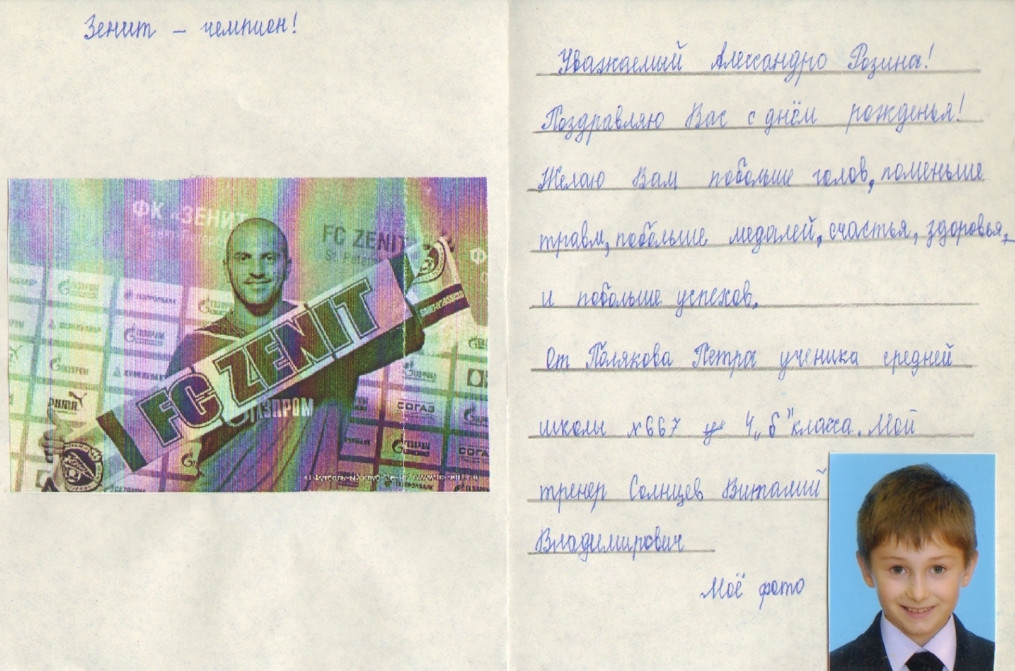 Зенит – чемпион!
ФК «ЗЕНИТ
FC ZENIT
St. Peter
FC ZENIT
ГАЗПРОМ
PUMA
СОГАЗ
Уважаемый Алессандро Розина!
Поздравляю Вас с днём рожденья!
Желаю Вам побольше голов, поменьше
травм, побольше медалей, счастья, здоровья,
и побольше успехов.
От Полякова Петра ученика средней
школы №667 4 „б" класса. Мой
тренер Солнцев Виталий
Владимирович
Моё фото